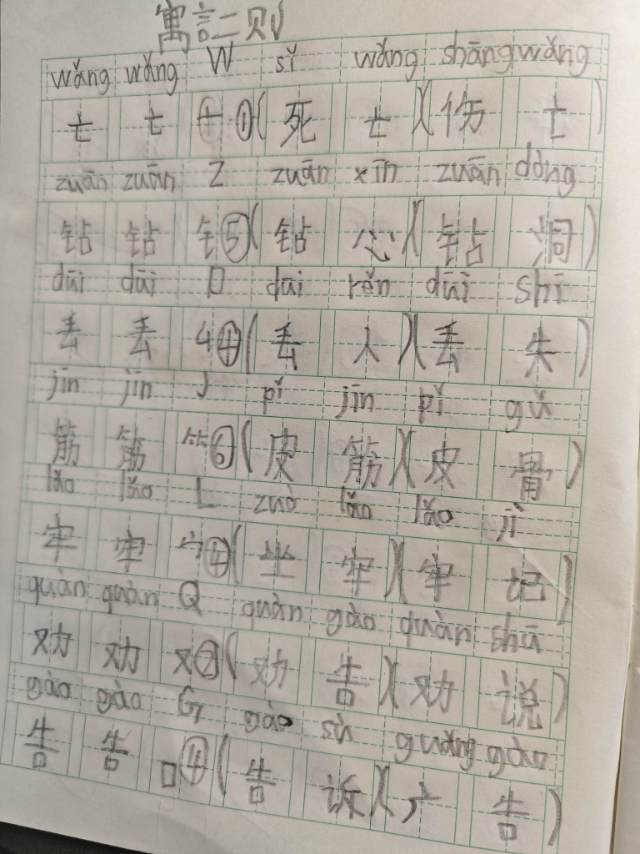 寓言二则
wǎng wǎng W sǐ wǎng shāng wǎng
亡 亡 亠 ①(死 亡)(伤 亡)
zuān zuān Z zuān xīn zuān dòng
钻 钻 钅⑤(钻 心)(钻 洞)
dūi dūi D dūi rén dūi shī
丢 丢 ④(丢 人)(丢 失)
jīn jīn J pí jīn pí gǔ
筋 筋 ⺮⑥(皮 筋)(皮 骨)
lǎo lǎo L zuò lǎo lǎo jì
牢 牢 宀④(坐 牢)(牢 记)
quàn quàn Q quàn gào quàn shuō
劝 劝 又②(劝 告)(劝 说)
gào gào G gào sù guǎng gào
告 告 口④(告 诉)(广 告)